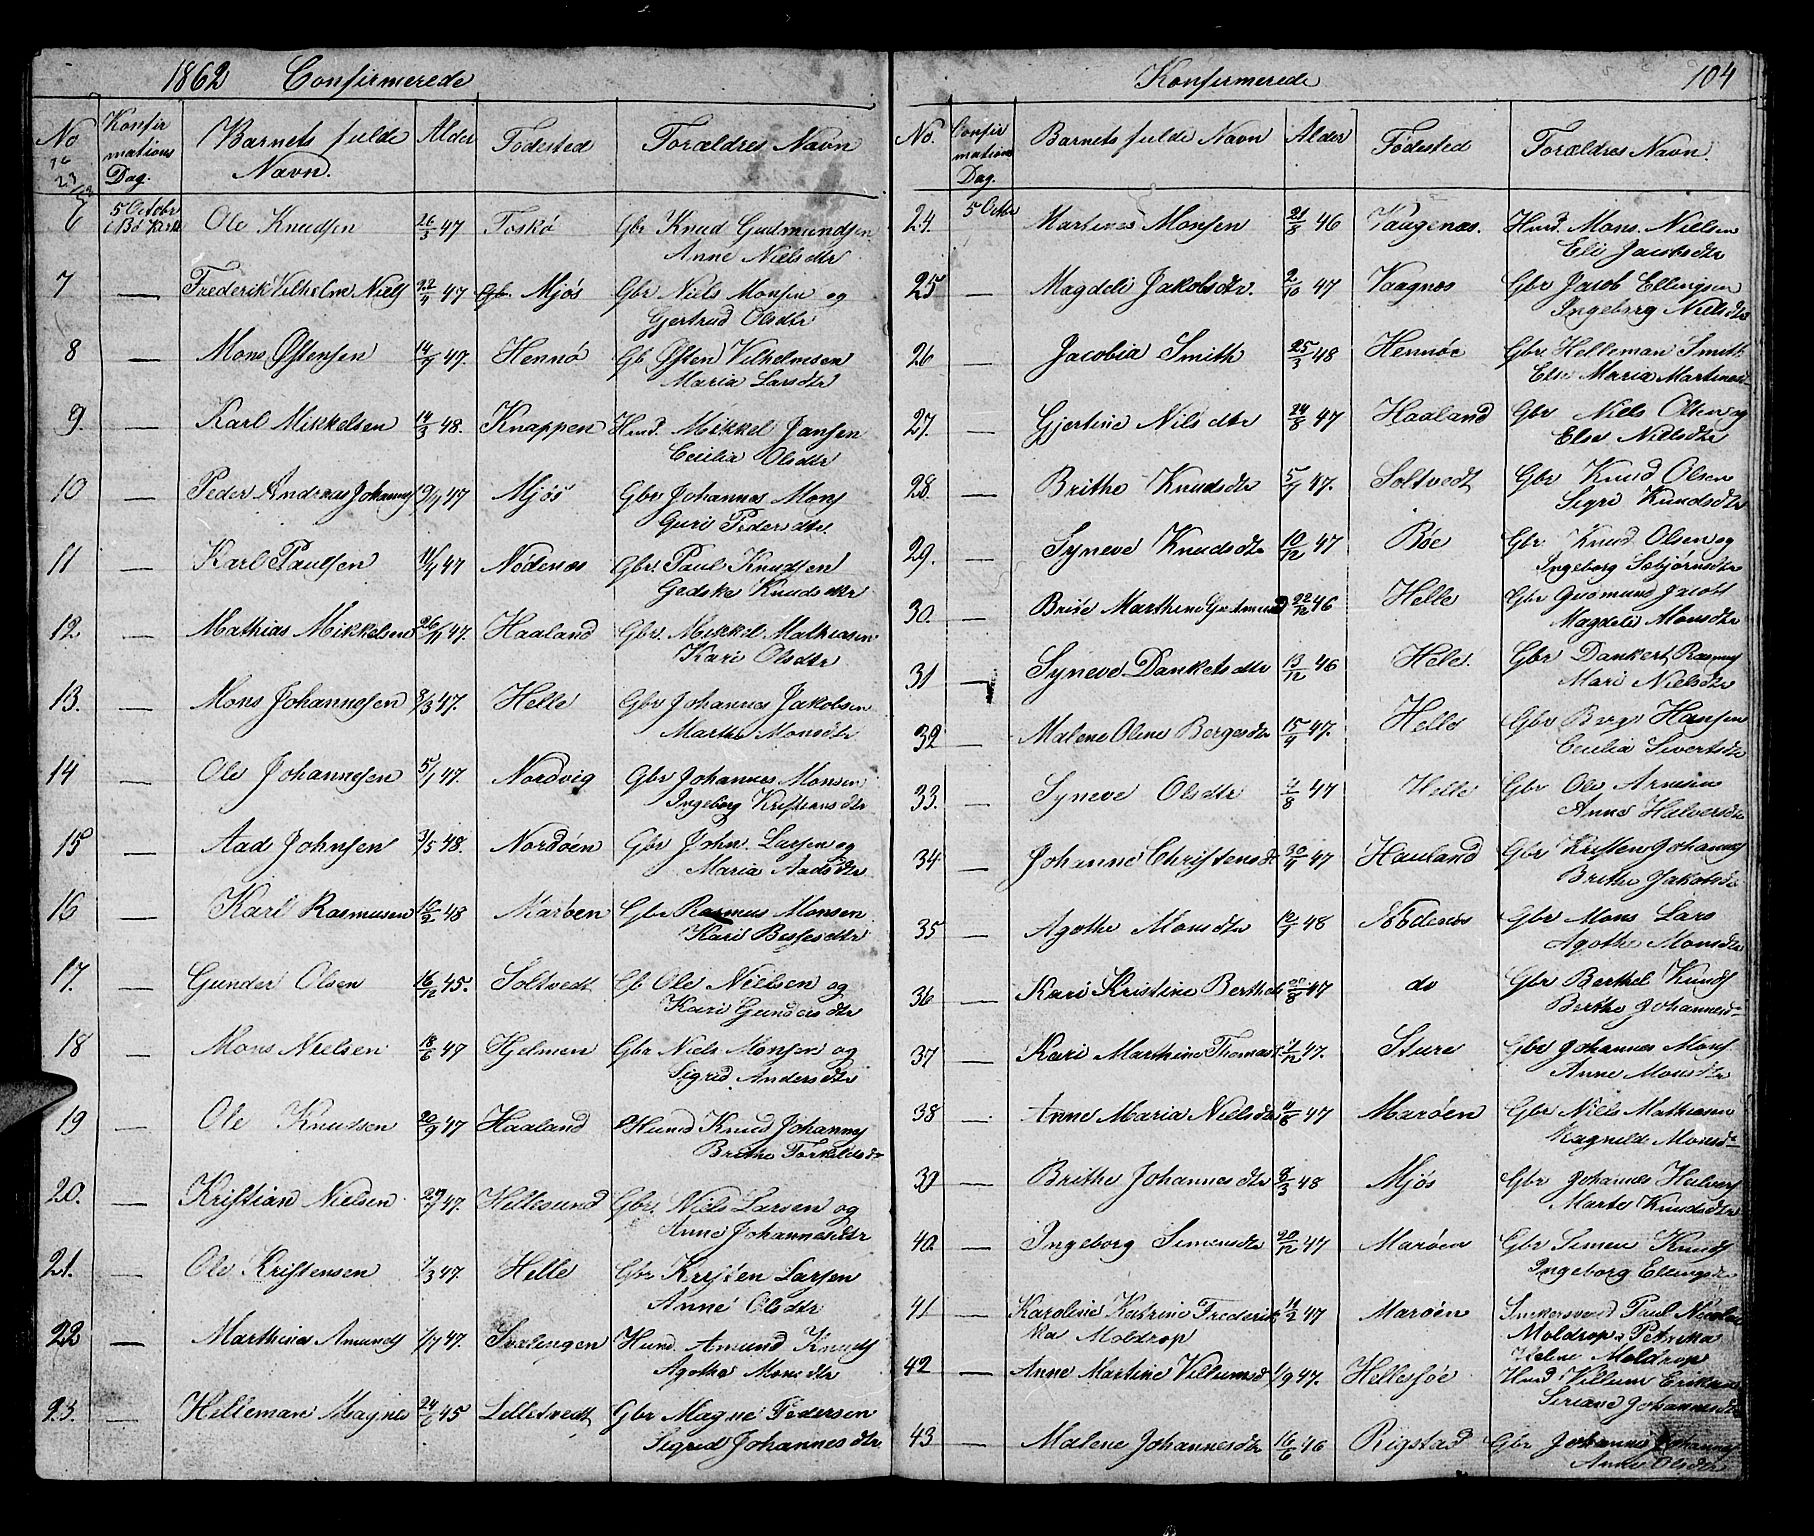 1862 Confirmerede
No Konfir mations Dag. Barnets fulde Navn. Alder Födested Forældres Navn
6 5 Octobr i Bö Kirke Ole Knudsen 26/3 47 Foskö Gbr Knud Gudmundsen
Anne Nielsdtr
7 — Frederik Vilhelm Niels 22/4 47 Mjös Gbr Niels Monsen og
Gjertrud Olsdtr
8 — Mons Östensen 14/9 47. Hennö Gb Östen Vilhelmsen
Maria Larsdtr
9. — Karl Mikkelsen 14/3 48. Knappen Huusd. Mikkel Jansen
Cecilia Olsdtr
10 — Peder Andreas Johannes 19/9 47 Mjös Gbr Johannes Mons
Guri Pedersdtr
11 — Karl Paulsen 11/4 47 Nödenæs Gbr. Paul Knudsen
Gedske Knudsdtr
12. — Mathias Mikkelsen 26/11 47. Haaland Gbr. Mikkel Mathiasen
Kari Olsdtr
13. — Mons Johannesen 8/3 47. Helle Gbr Johannes Jakobsen
Marthe Monsdtr
14 — Ole Johannesen 5/1 47. Nordvig Gbr Johannes Monsen
Ingeborg Kristiansdtr
15 — Aad Johnsen 3/5 48. Nordöen Gbr John Larsen og
Maria Aadsdtr
16 — Karl Rasmusen 10/2 48 Maröen Gbr Rasmus Monsen
Kari Besfesdtr
17. — Gunder Olsen 16/12 45. Soltvedt Gb Ole Nielsen og
Kari Gundersdtr
18 — Mons Nielsen 18/6 47 Hjelmen Gbr Niels Monsen og
Sigrid Andersdtr
19 — Ole Knudsen 20/9 47 Haaland Huusd Knud Johannes
Brithe Torkildsdr
20. — Kristian Nielsen 29/7 47. Hellesund Gbr. Niels Larsen og
Anne Johannesdtr
21. — Ole Kristensen 7/3 47. Helle Gbr Kristen Larsen
Anne Olsdtr
22 — Marthines Amunds 1/7 47. Torlengen Huusd. Amund Knuds
Agothe Monsdtr
23. — Helleman Magnes 24/6 45 Lilletvedt Gbr Magne Pedersen
Sigrid Johannesdtr
Konfirmerede 104
No. Confir mations Dag. Barnets fulde Navn Alder Födested Forældres Navn.
24. 5 Octbr Martines Monsen 21/8 46 Vaagenæs. Huusd. Mons Nielsen
Eli Jacobsdtr
25 — Magdeli Jakobsdtr. 2/10 47 Vaagnæs Gbr Jacob Ellingsen
Ingeborg Nielsdtr
26 — Jacobia Smith 25/3 48 Hennöe Gbr Helleman Smith
Else Maria Martines
27. — Gjertine Nilsdtr 24/8 47 Haaland Gbr Niels Olsen og
Else Nielsdtr
28. — Brithe Knudsdtr 5/7 47. Soltvedt Gbr Knud Olsen
Sigri Knudsdtr
29. — Syneve Knudsdtr 10/12 47 Böe Gbr Knud Olsen og
Ingeborg Esbjörnsdtr
30. — Brise Marthine Gudmund 22/12 46 Helle Gbr Gudmund Jacobs
Magdeli Monsdtr
31 — Syneve Danketsdtr 13/12 46 Hele. Gbr Dankert Rasmus
Mari Nielsdtr
32 — Malene Oline Bergesdtr 15/9 47. Helle Gbr Berge Hansen
Cecilia Sivertsdtr
33. — Syneve Olsdtr 4/8 47 Helle Gbr Ole Arnesen
Anne Halversdtr
34 — Johanne Christensd 30/9 47 Hauland Gbr Kristen Johannes
Brithe Jakobsd
35 — Agothe Monsdtr 12/7 48 Nödenæs Gbr Mons Lars
Agothe Monsdtr
36 — Kari Kristine Berthels /8 47 do Gbr Berthel Knuds
Berthe Johannesd
37 — Kari Marthine Thomas 1/12 47. Sture Gbr Johannes Mons
Anne Monsdtr
38 — Anne Maria Nielsdtr 4/6 47 Maröen Gbr Niels Mathiasen
Ragnilde Monsd
39 — Brithe Johannesdtr 9/3 48 Mjös Gbr Johannes Halvers
Marte Knudsdtr
40. — Ingeborg Simensdtr 20/12 47 Maröen Gbr Simen Knuds
Ingeborg Ellingsdr
41 — Karoline Katrine Frederik 11/2 47 Maröen Paul Nicolai
ka Moldrop Moldrop Petrika
Helene Moldrop
42 — Anne Martine Villumsd 1/9 47. Hellesöe Huusd Villum Eriksen
Seriane Johannesdtr
43 — Malene Johannesdtr 16/6 46 Rigstad Gbr Johannes Johannes
Anne Olsdtr